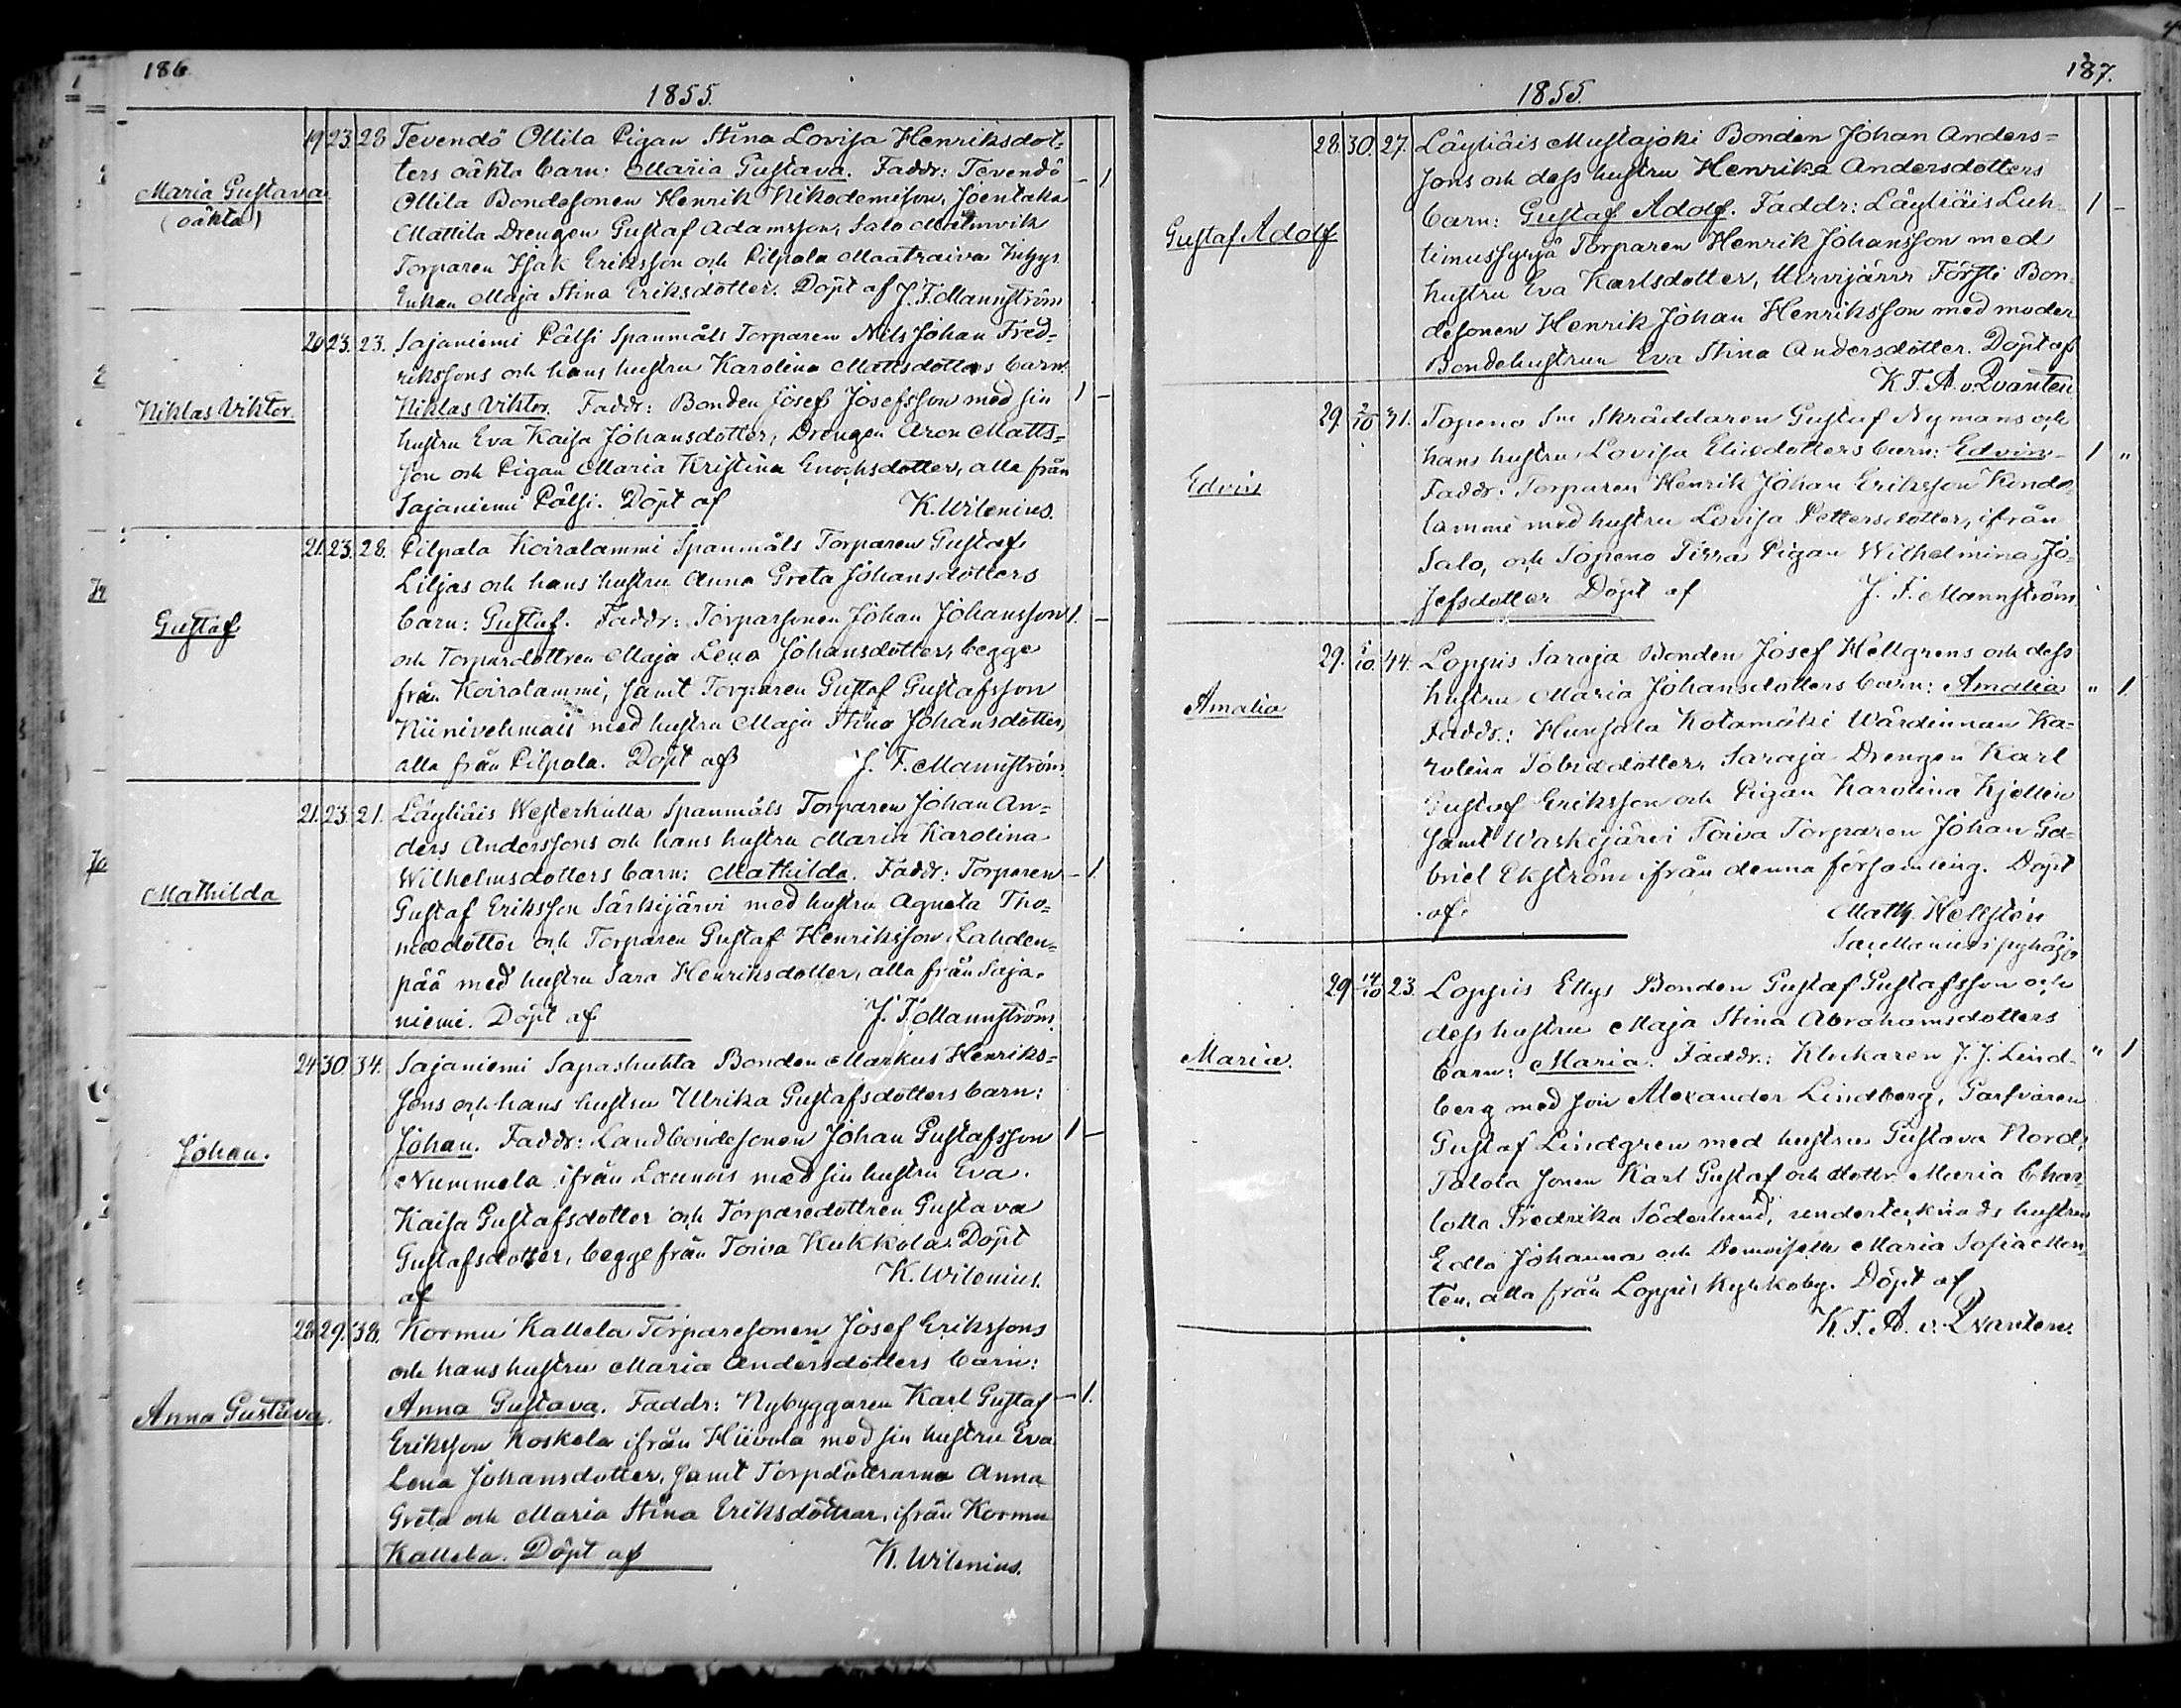 186
1855.
Maria Gustava
(oäkta)
19. 23. 28 Tevendö Ollila Pigan Stina Lovisa Henriksdot-
ters oäkta barn: Maria Gustava. Faddr: Tevendö - 1
Ollila Bondesonen Henrik Nikodemison, Joentaka
Mattila Drengen Gustaf Adamsson, Salo Malmvik
Torparen Isak Eriksson och Pilpala Maatraiva
Enkan Maja Stina Eriksdotter. Döpt af J. F. Mannström
Niklas Viktor.
20 23. 23. Sajaniemi Pälsi Spanmåls Torparen Nils Johan Fred-
rikssons och hans hustru Karolina Mattsdotters barn
Niklas Viktor. Faddr: Bonden Josef Josefsson med sin 1 -
hustru Eva Kaisa Johansdotter, Drengen Aron Matts-
son och Pigan Maria Kristina Enochsdotter, alla från
Sajaniemi Pälsi. Döpt af K. Wilenius.
Gustaf
21. 23. 28. Pilpala Koiralammi Spanmåls Torparen Gustaf
Liljas och hans hustru Anna Greta Johansdotters
barn: Gustaf. Faddr: Torparsonen Johan Johansson 1. -
och Torpardottren Maja Lena Johansdotter, begge
från Koiralammi, samt Torparen Gustaf Gustafsson
Niinivehmais med hustru Maja Stina Johansdotter,
alla från Pilpala. Döpt af J. F. Mannström
Mathilda
21. 23. 21. Läyliäis Westerkulla Spanmåls Torparen Johan An-
ders Anderssons och hans hustru Maria Karolina
Wilhelmsdotters barn: Mathilda. Faddr: Torparen - 1.
Gustaf Eriksson Särkijärvi med hustru Agneta Tho-
mædotter och Torparen Gustaf Henriksson Lahden-
pää med hustru Sara Henriksdotter, alla från Saja-
niemi. Döpt af J. F. Mannström.
Johan.
24. 30. 34. Sajaniemi Sapashuhta Bonden Markus Henriks-
sons och hans hustru Ulrika Gustafsdotters barn:
Johan. Faddr: Landbondesonen Johan Gustafsson 1 -
Nummela ifrån Lounois med sin hustru Eva
Kaisa Gustafsdotter och Torparedottren Gustava
Gustafsdotter, begge från Toiva Kukkola. Döpt
af K. Wilenius.
Anna Gustava.
28. 29. 38. Kormu Kallela Torparesonen Josef Erikssons
och hans hustru Maria Andersdotters barn:
Anna Gustava. Faddr: Nybyggaren Karl Gustaf - 1.
Eriksson Koskela ifrån Hiivola med sin hustru Eva
Lena Johansdotter, samt Torpdöttrarna Anna
Greta och Maria Stina Eriksdöttrar, ifrån Kormu
Kallela. Döpt af K. Wilenius.
187.
1855.
Gustaf Adolf
28. 30. 27. Läyliäis Mustajoki Bonden Johan Anders-
sons och dess hustru Henrika Andersdotters
barn: Gustaf Adolf. Faddr: Läyliäis Luh- 1 -
Torparen Henrik Johansson med
hustru Eva Karlsdotter, Försti Bon-
desonen Henrik Johan Henriksson med moder
Bondehustrun Eva Stina Andersdotter. Döpt af
K. F. A. v. Qvanten
Edvin
29. 2/10 31. Topeno Sm Skräddaren Gustaf Nymans och
hans hustru Lovisa Eliædotters barn: Edvin. 1 "
Faddr: Torparen Henrik Johan Eriksson Kondo-
lammi med hustru Lovisa Pettersdotter, ifrån
Salo, och Topeno Pirra Pigan Wilhelmina Jo-
sefsdotter Döpt af J. F. Mannström.
Amalia
29. 1/10. 44. Loppis Saraja Bonden Josef Hellgrens och dess
hustru Maria Johansdotters barn: Amalia " 1
Faddr.: Hunsala Kotamäki Wärdinnan Ka-
rolina Tobiædotter, Saraja Drengen Karl
Gustaf Eriksson och Pigan Karolina Kjellin
samt Waskijärvi Toiva Torparen Johan Ga-
briel Ekström ifrån denna församling. Döpt
af Math. Hellstén
Maria.
29 14/10 23. Loppis Ellys Bonden Gustaf Gustafsson och
dess hustru Maja Stina Abrahamsdotters
barn: Maria. Faddr.: Klockaren J. J. Lind- " 1
berg med son Alexander Lindberg, Garfvaren
Gustaf Lindgren med hustru Gustava Nord,
Talola sonen Karl Gustaf och dottr Maria Char-
lotta Fredrika Söderlund, undertecknads hustru
Edla Johanna och Demoiselle Maria Sofia Mon-
tén, alla från Loppis Kyrkoby. Döpt af
K. F. A. v. Qvanten.